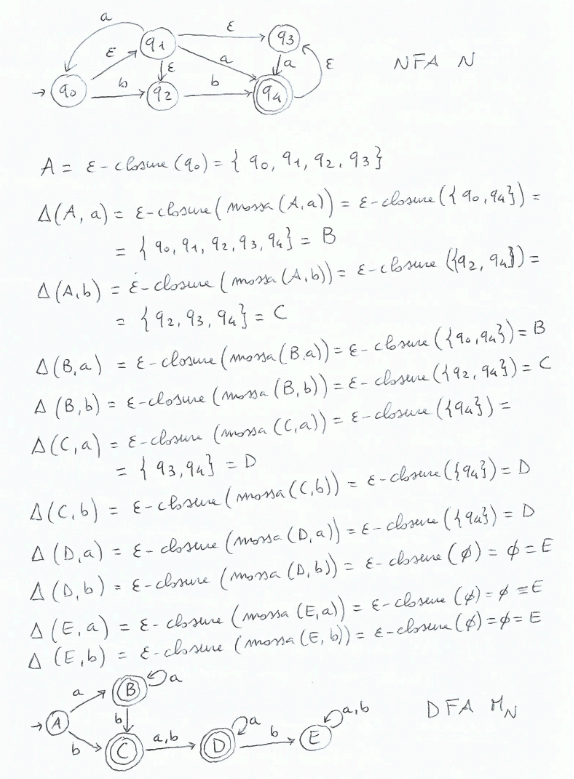 a
q1 ε q3
ε ε a a ε NFA N
q0 b q2 b q4
A = ε-closure(q0) = { q0, q1, q2, q3 }
Δ(A, a) = ε-closure(mossa(A,a)) = ε-closure({q0,q4}) =
= { q0, q1, q2, q3, q4 } = B
Δ(A,b) = ε-closure(mossa(A,b)) = ε-closure({q2, q4}) =
= { q2, q3, q4 } = C
Δ(B,a) = ε-closure(mossa(B,a)) = ε-closure({q0,q4}) = B
Δ(B,b) = ε-closure(mossa(B,b)) = ε-closure({q2, q4}) = C
Δ(C,a) = ε-closure(mossa(C,a)) = ε-closure({q4}) =
= { q3,q4 } = D
Δ(C,b) = ε-closure(mossa(C,b)) = ε-closure({q4}) = D
Δ(D,a) = ε-closure(mossa(D,a)) = ε-closure({q4}) = D
Δ(D,b) = ε-closure(mossa(D,b)) = ε-closure(ϕ) = ϕ = E
Δ(E,a) = ε-closure(mossa(E,a)) = ε-closure(ϕ) = ϕ = E
Δ(E,b) = ε-closure(mossa(E,b)) = ε-closure(ϕ) = ϕ = E
a B a
A b a a,b DFA MN
b C a,b D b E